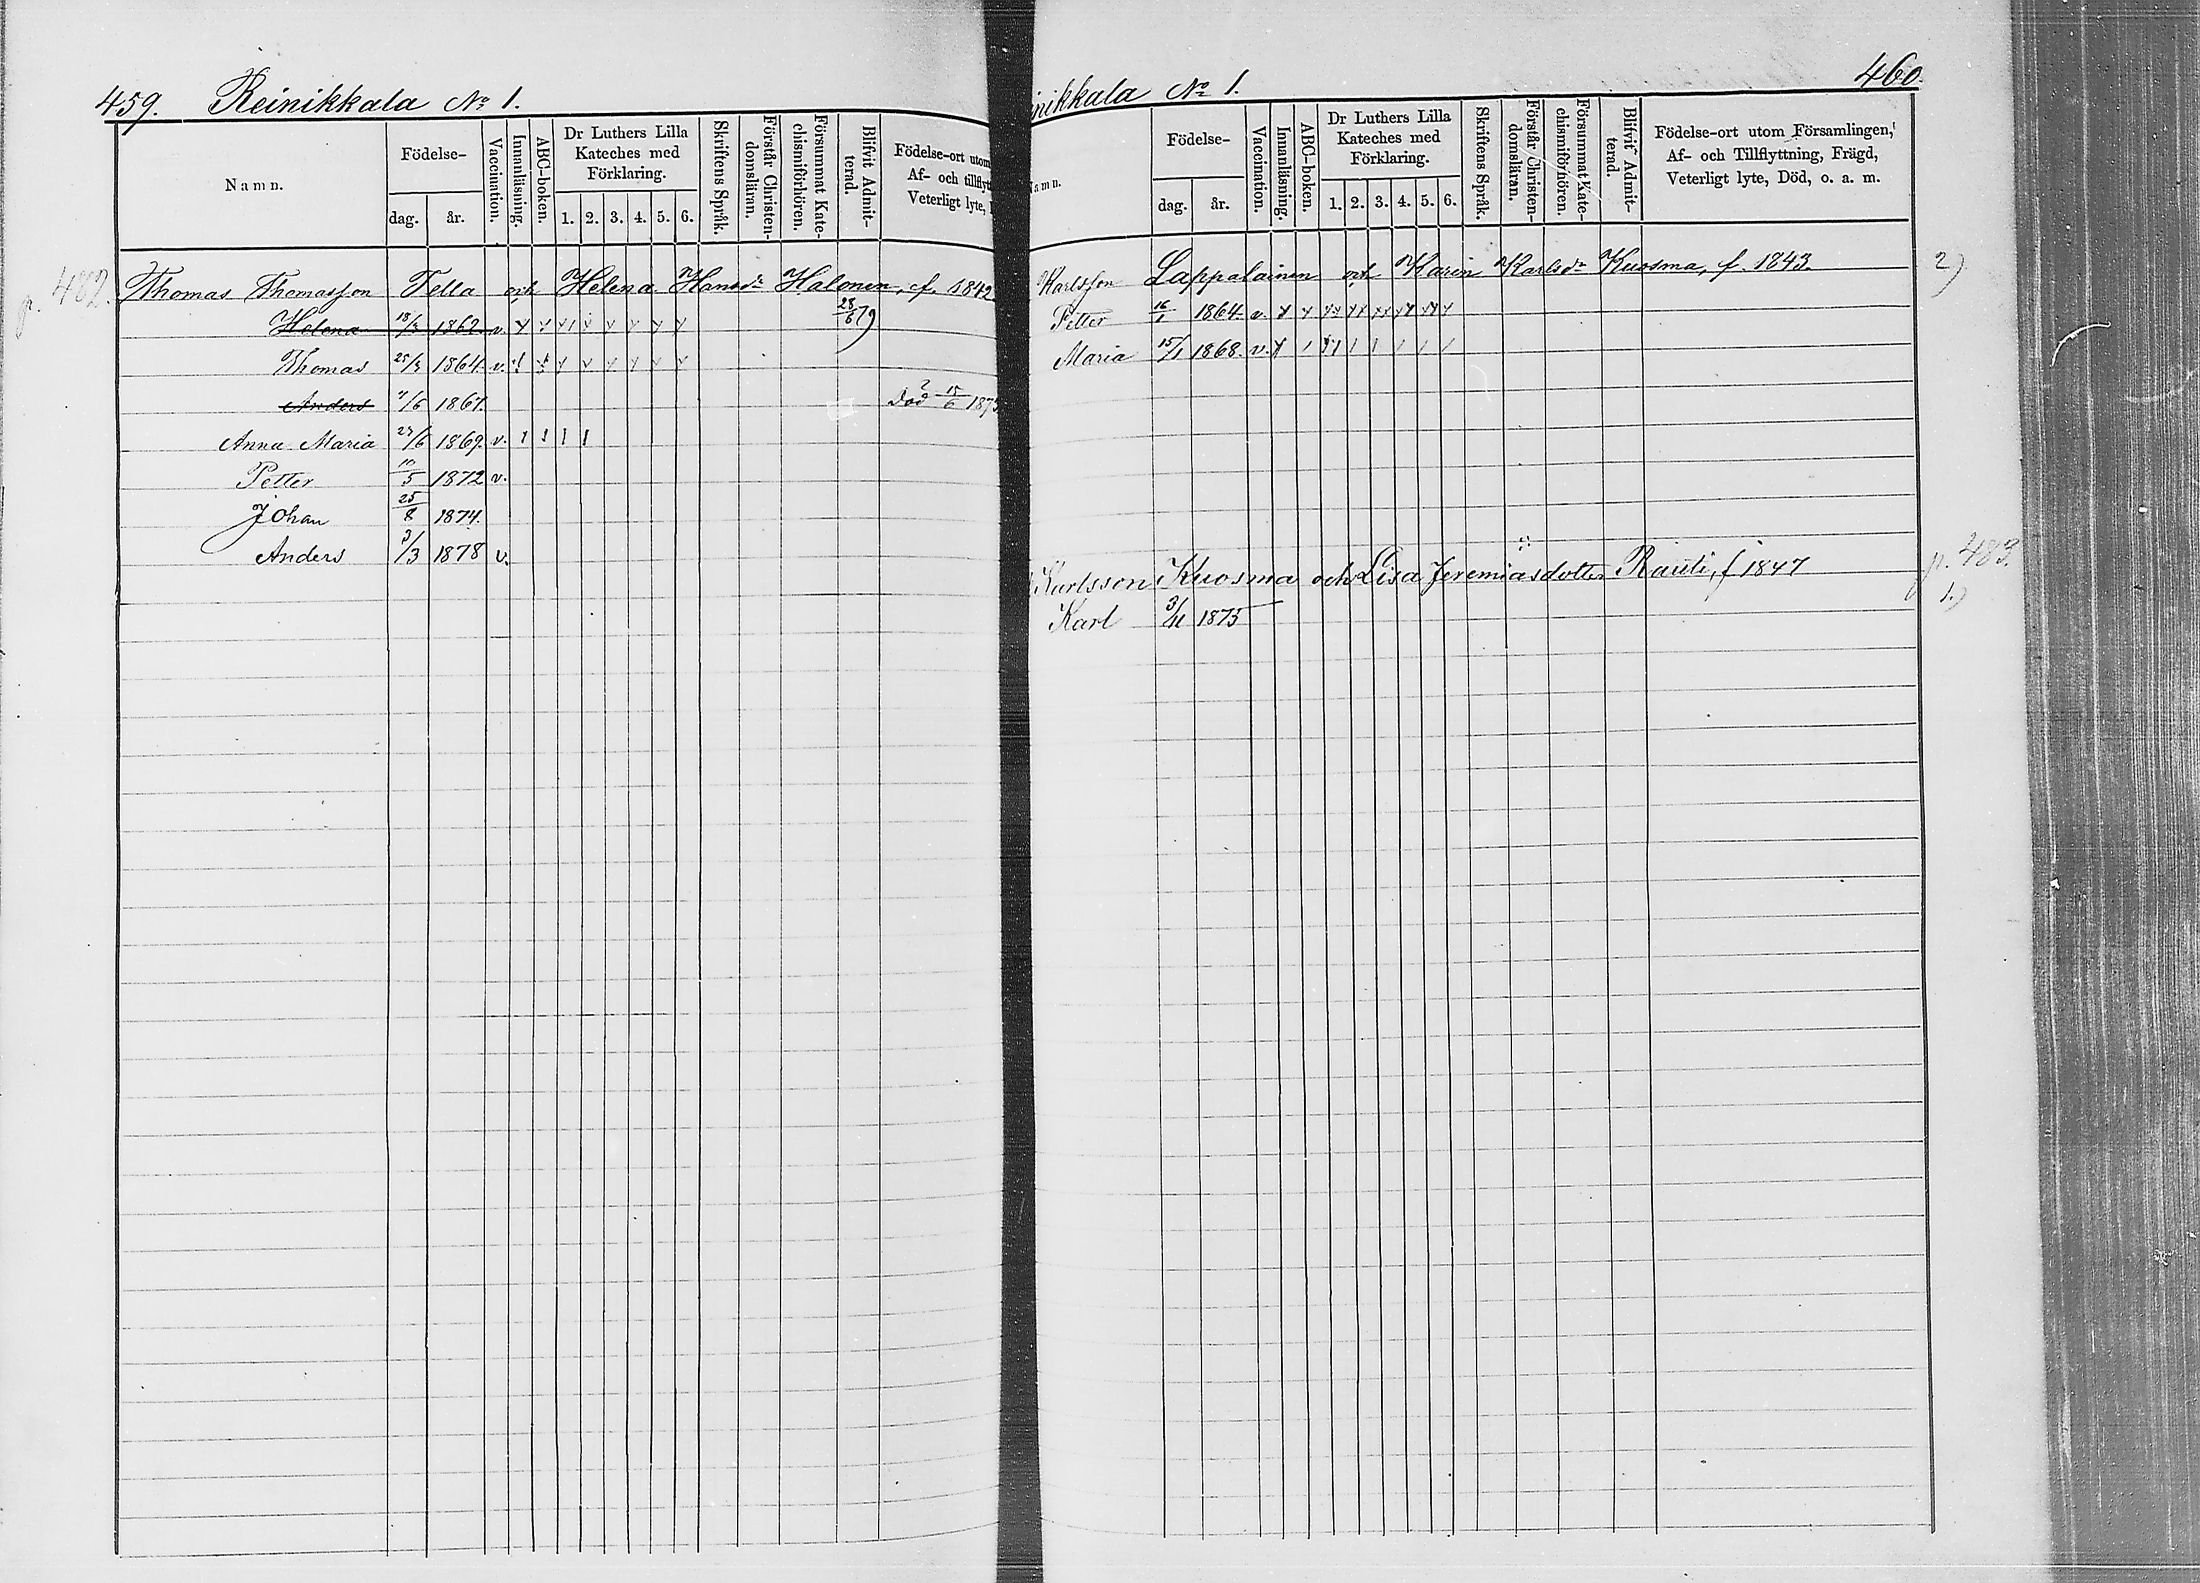 459. Reinikkala No 1.
Namn.
Födelse-
dag. år.
Vaccination.
Innanläsning.
ABC-boken.
Dr Luthers Lilla
Kateches med
Förklaring.
1. 2. 3. 4. 5. 6.
Skriftens Språk.
Förstår Christen-
domsläran.
Försummat Kate-
chismiförhören.
Blifvit Admit-
terad.
Födelse-ort utom
Af- och tillflytt
Veterligt lyte,
p. 482.
Thomas Thomasson Tella och Helena Hansdr Halonen, f. 1842
Helena 18/3 1862. v. 28/6 79
Thomas 25/3 1864. v.
Anders 7/6 1867. Död 15/6 187
Anna Maria 24/6 1869. v.
Petter 10/5 1872 v.
Johan 25/8 1874.
Anders 3/3 1878 v.
nikkala No 1.
460.
amn.
Födelse-
dag. år.
Vaccination.
Innanläsning.
ABC-boken.
Dr Luthers Lilla
Kateches med
Förklaring.
1. 2. 3. 4. 5. 6.
Skriftens Språk.
Förstår Christen-
domsläran.
Försummat Kate-
chismiförhören.
Blifvit Admit-
terad.
Födelse-ort utom Församlingen,
Af- och Tillflyttning, Frägd,
Veterligt lyte, Död, o. a. m.
Karlsson Lappalainen och Karin Karlsdr Kuosma, f. 1843. 2)
Petter 16/1 1864. v.
Maria 15/1 1868. v.
Karlsson Kuosma och Lisa Jeremiasdotter Rauti, f 1847 p. 483.
1.)
Karl 3/11 1875